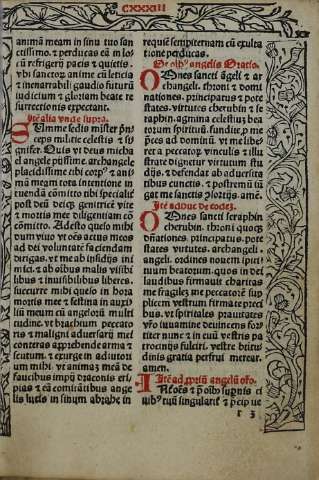 CXXXIII
animā meam in sinu tuo san
ctissimo. ⁊ perducas eā in locū
refrigerij pacis & quietis.
vbi sanctoꝝ anime cū leticia
⁊ inenarrabili gaudio futurū
iudiciū ⁊ gloriam beate re
surrectionis expectant.
Itē alia vnde supra.
Summe sedis minister prin
ceps militie celestis ⁊ si
gnifer. Quis vt deus micha
el angele piissime. archangele
placidissime tibi corpꝰ ⁊ ani
mā meam tota intentione in
tremēdā cōmitto tibi speciali
post deū deiqꝫ genitricē vite
⁊ mortis mee diligentiam cō
cōmitto. Adesto queso mihi
dum viuo vt oēs actus meos
ad dei volūtatē faciendam
dirigas. vt me ab insidijs ini
mici. ⁊ ab oībus malis visibi
libus ⁊ inuisibilibus liberes.
succurre mihi queso in hora
mortis mee ⁊ festina in auxi
liū meum cū angeloꝝ multi
tudine. vt brachium peccato
ris ⁊ maligni aduersarij mei
conteras apprehende arma ⁊
scutum. ⁊ exurge in adiutori
um mihi. vt animaꝫ meā de
faucibus impij draconis eri
pias ⁊ eā comitātibus angelis
lucis in sinum abrahe in
requiē sempiternam cū exulta
tione perducas.
De oībꝰ angelis Oratio.
Omnes sancti angeli ⁊ ar
changeli. throni ⁊ domi
nationes. principatus ⁊ pote
states. virtutes cherubin ⁊ se
raphin. agmina celestiuꝫ bea
torum spirituū. fundite pro me
preces ad dominū. vt me libe
ret a peccatorū vinculis
⁊ defendat ab aduersita
tibus cunctis.
Itē ad hec de eodez.
Omnes sancti seraphin
cherubin. throni quoqꝫ
dominationes. principatus. pote
states virtutes. archangeli.
angeli. ordines nouem spiri
tuum beatorum. quos in dei
laudibus firmauit charitas
me fragilez me peccatorē sup
plicem vestrum firma te preci
bus. vt spirituales prauitates
vestro iuuamine deuincens for
titer nunc ⁊ in euū vestris pa
trocinijs fulciri. vestre beatitu
dinis gratia perfrui merear.
amen.
Itē ad propriū angelū oratio.